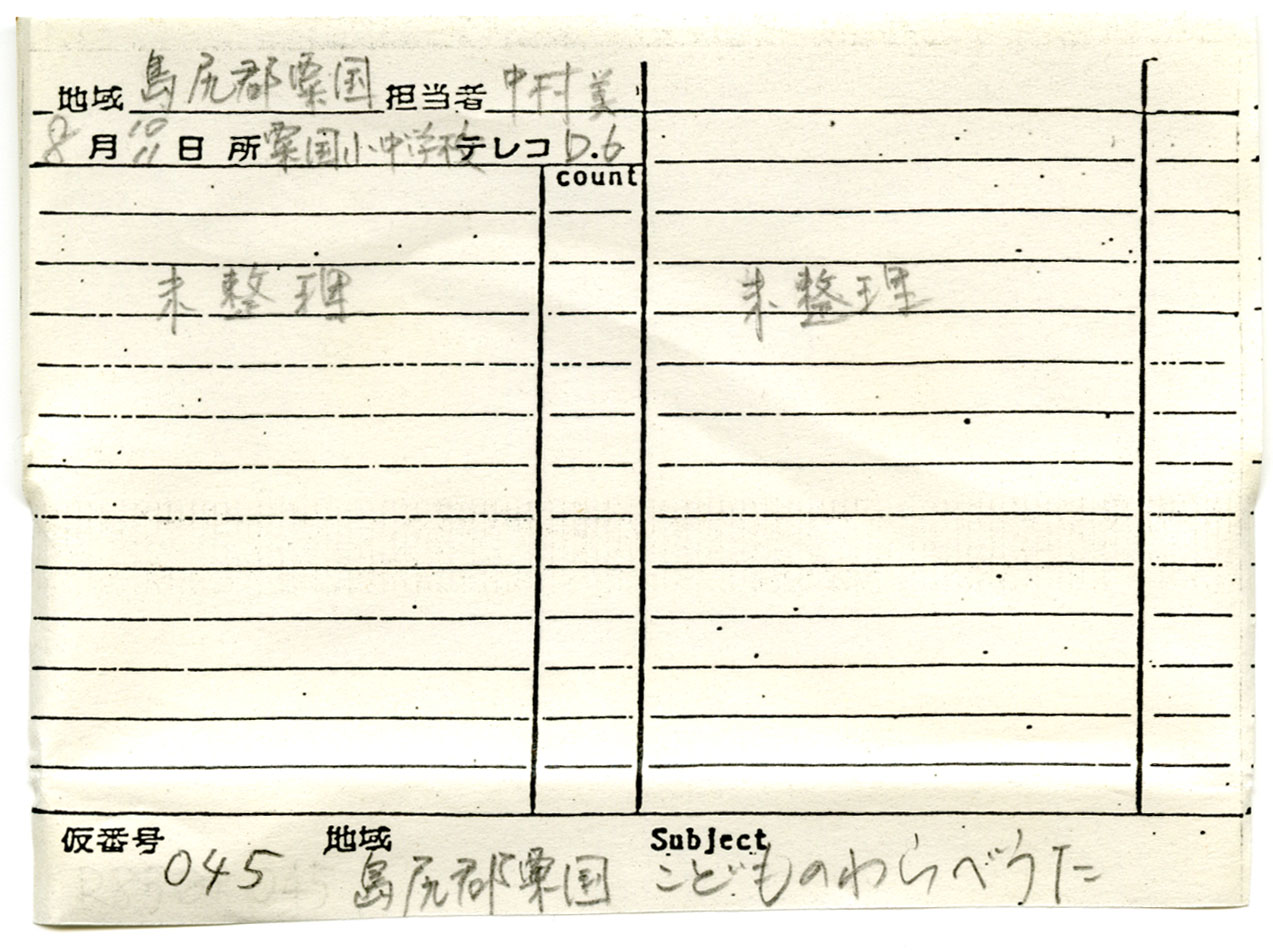 地域 島尻郡粟国 担当者 中村美
8月 10 11 日 所 粟国小中学校 テレコ D.6
count
未整理 未整理
仮番号 地域 Subject
045 島尻郡粟国 こどものわらべうた